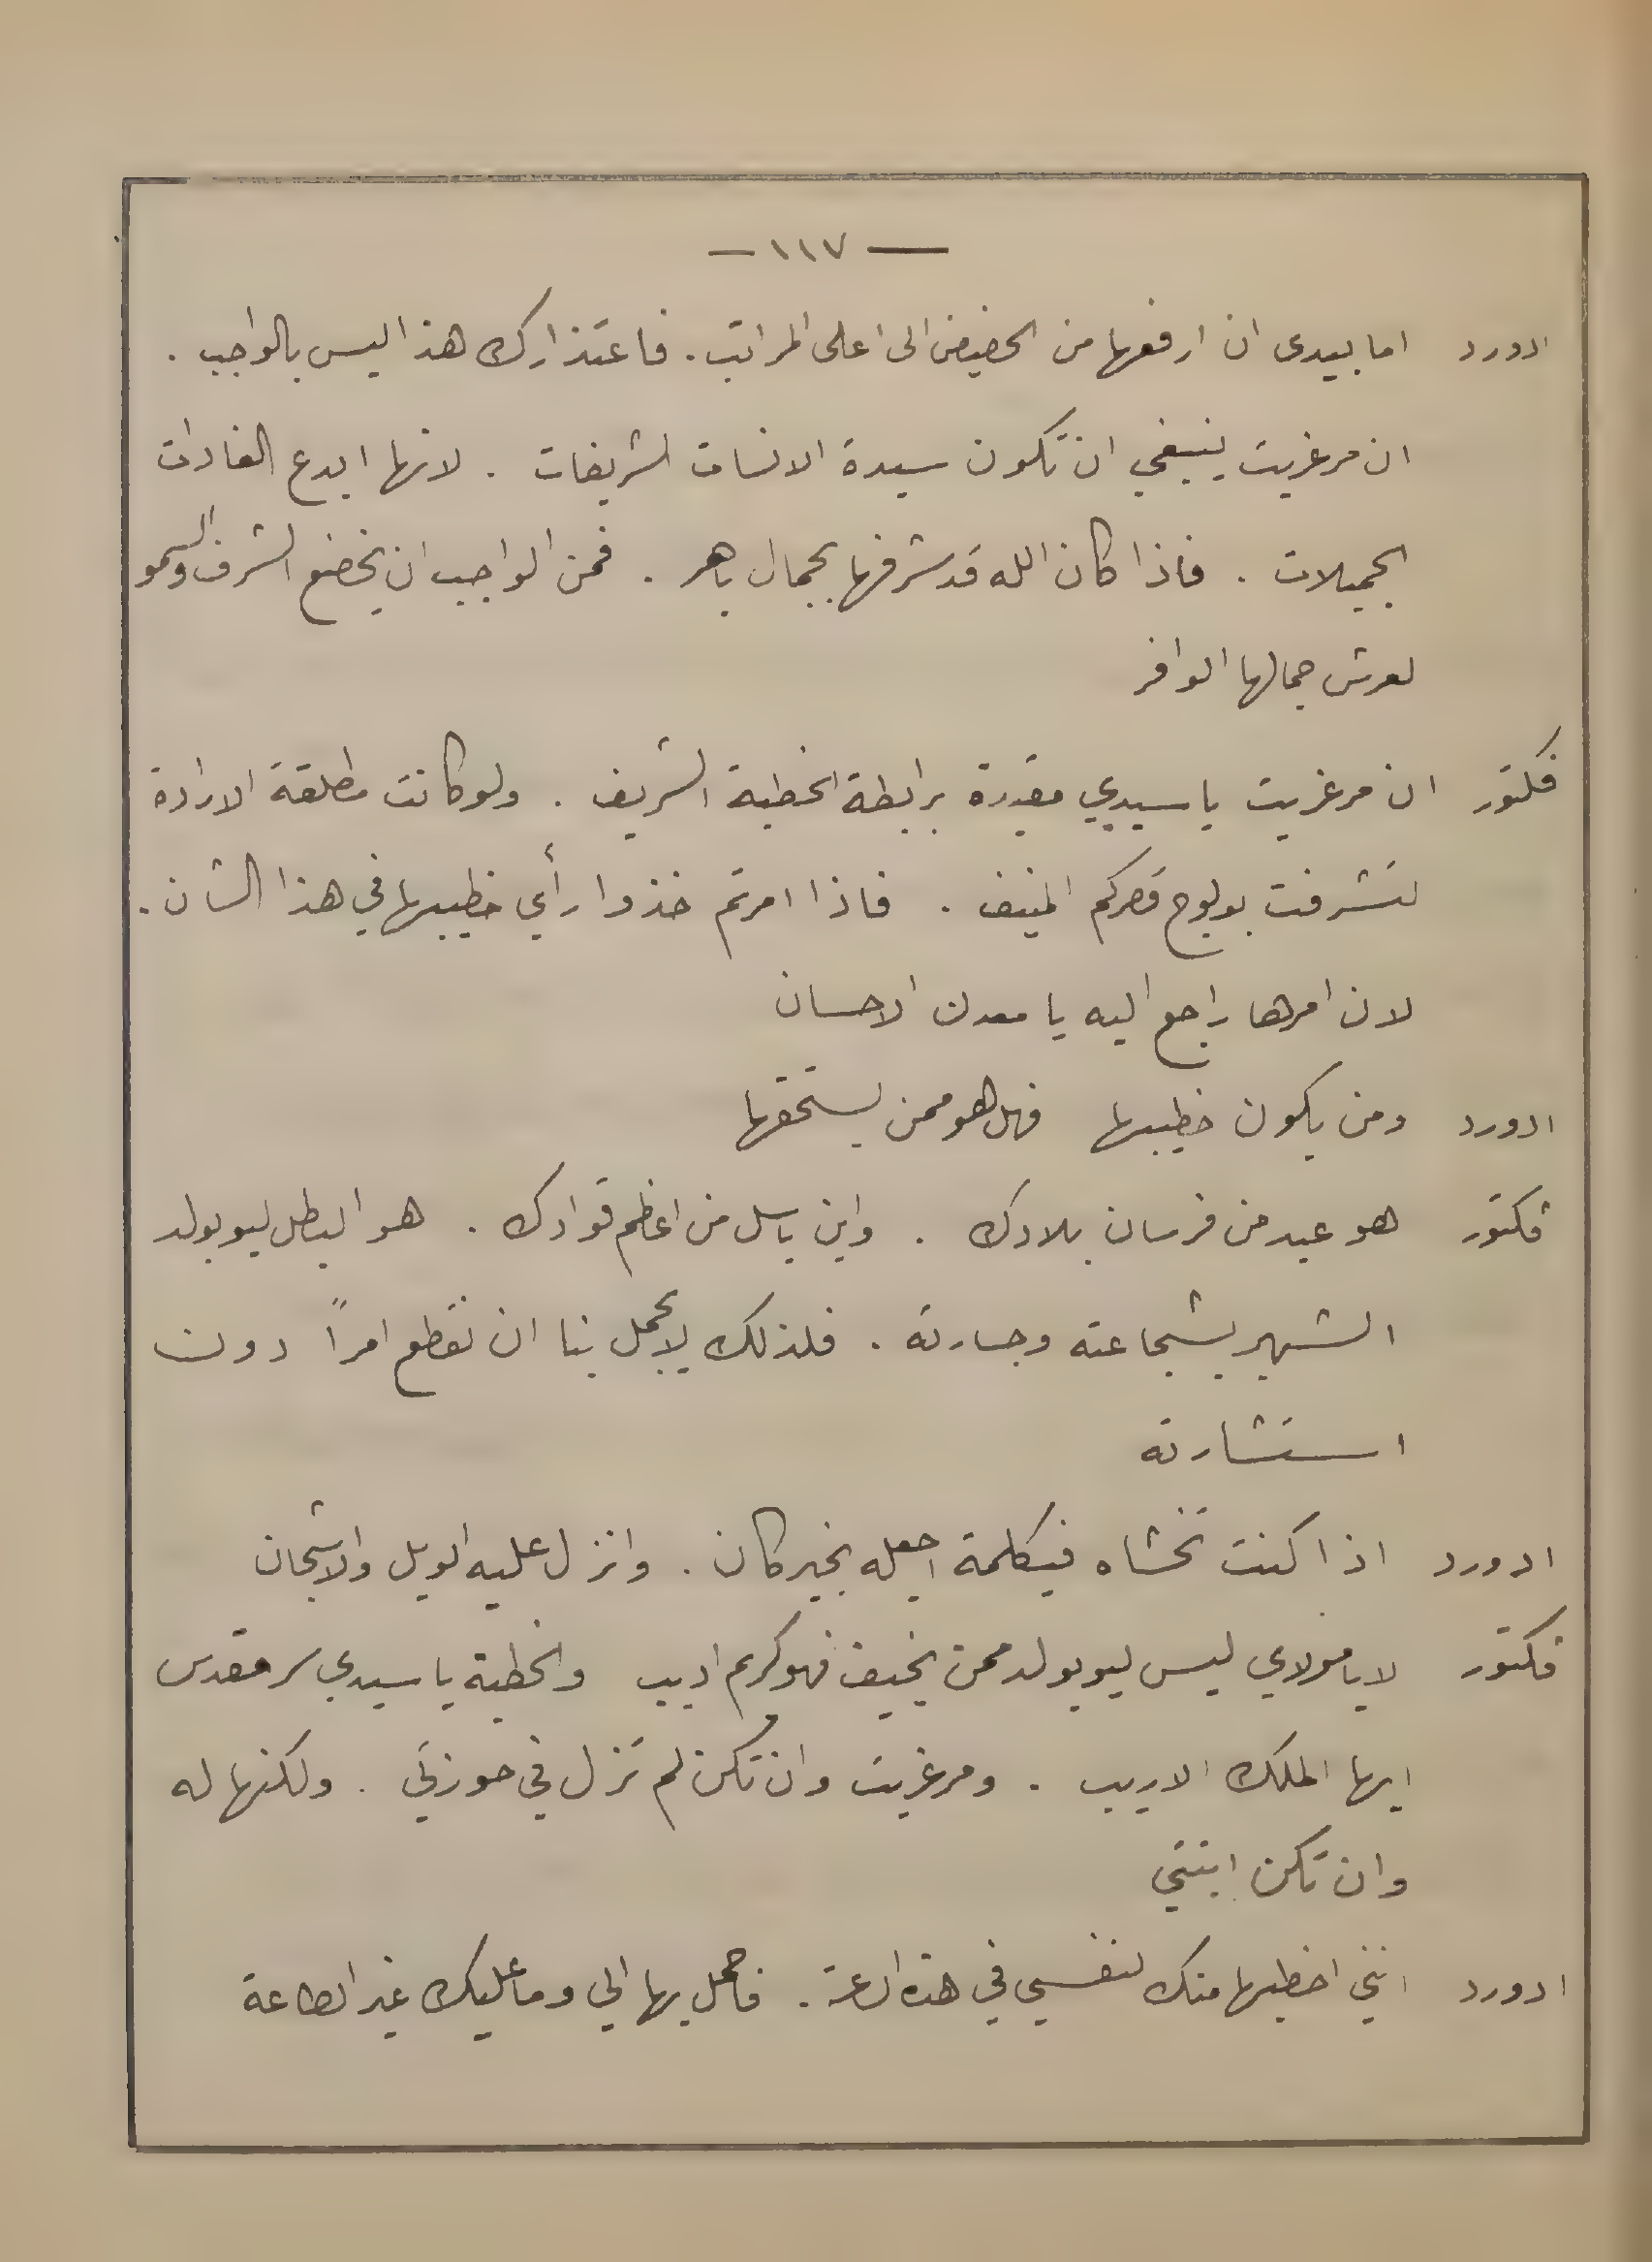 — ١١٧ —
ادورد اما بيدى ان ارفعها من الحضيض الى اعلى المراتب . فاعتذارك هذا ليس بالواجب .
ان مرغريت ينبغي ان تكون سيدة الانسات الشريفات . لانها ابدع الغادات
الجميلات . فاذا كان الله قد شرفها بجمال باهر . فمن الواجب ان يخضع الشرف والسمو
لعرش جمالها الوافر
فكتور ان مرغريت يا سيدي مقيدة برابطة الخطبة الشريف . ولو كانت مطلقة الارادة
لتشرفت بولوج قصركم المنيف . فاذا امرتم خذوا رأي خطيبها في هذا الشان .
لان امرها راجع اليه يا معدن الاحسان
ادورد ومن يكون خطيبها فهل هو ممن يستحقها
فكتور هو عبد من فرسان بلادك . وابن باسل من اعظم قوادك . هو البطل ليوبولد
الشهير بشجاعته وجسارته . فلذلك لا يجمل بنا ان نقطع امراً دون
استشارته
ادورد اذا كنت تخشاه فبكلمة اجعله بخبر كان . وانزل عليه الويل والاشجان
فكتور لا يا مولاي ليس ليوبولد ممن يخيف فهو كريم اديب والخطبة يا سيدي سر مقدس
ايها الملك الاريب . ومرغريت وان تكن لم تزل في حوزتي . ولكنها له
وان تكن ابنتي
ادورد انني اخطبها منك لنفسي في هذه الساعة . فاحمل بها الي وما عليك غير الطاعة